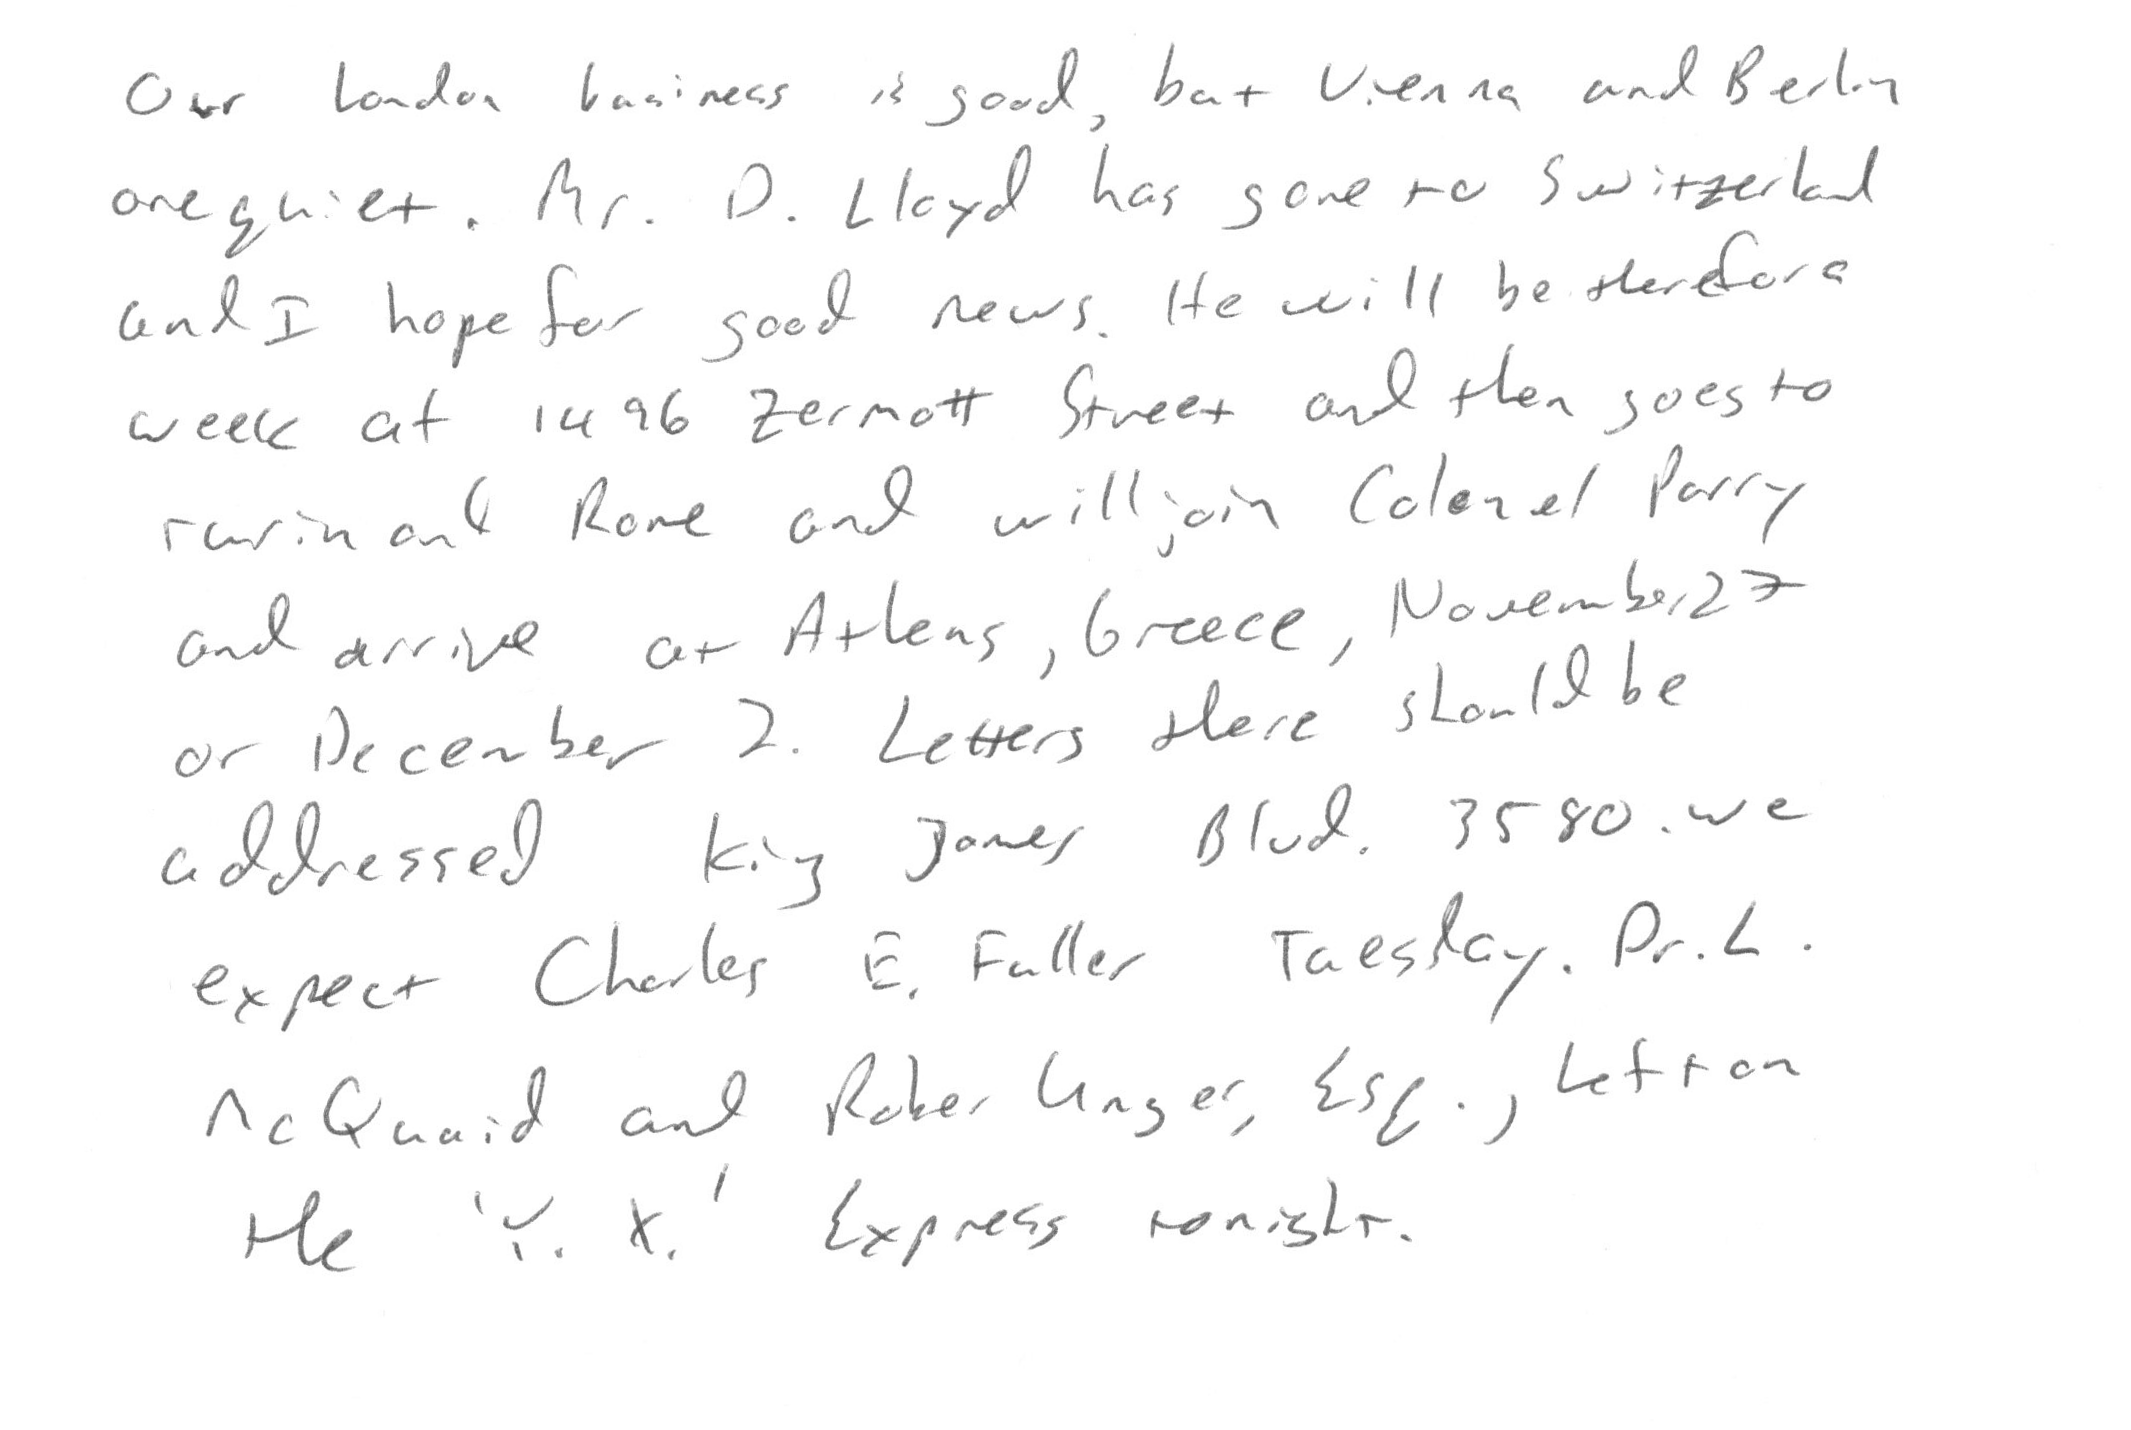 Our London business is good, but Vienna and Berlin
are quiet. Mr. D. Lloyd has gone to Switzerland
and I hope for good news. He will be there for a
week at 1496 Zermott Street and then goes to
Turin and Rome and will join Colonel Parry
and arrive at Athens, Greece, November 27
or December 2. Letters there should be
addressed King James Blvd. 3580. We
expect Charles E. Fuller Tuesday. Dr. L.
McQuaid and Rober Unger, Esq., left on
the 'Y. X.' Express tonight.